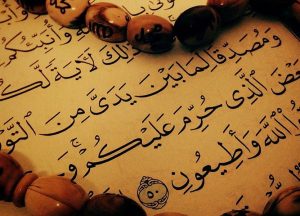 وَأُنَبِّئُكُم
ذَٰلِكَ لَآيَةً لَّكُ
وَمُصَدِّقًا لِّمَا بَيْنَ يَدَىَّ مِنَ التَّوْ
عْضَ الَّذِى حُرِّمَ عَلَيْكُمْ ۚ وَ
وا اللَّهَ وَأَطِيعُونِ ٥٠